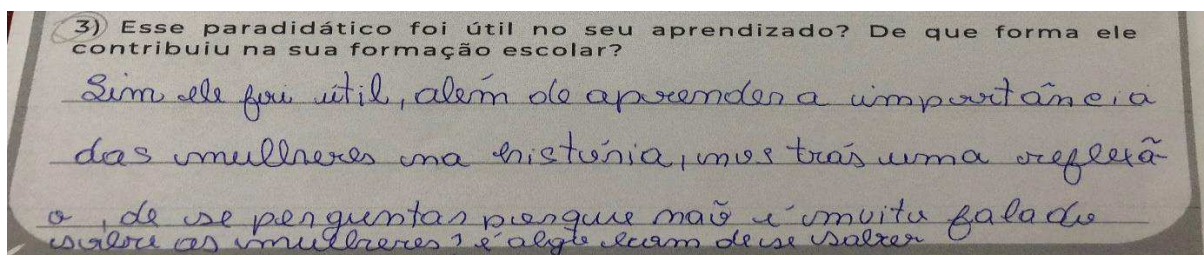 3) Esse paradidático foi útil no seu aprendizado? De que forma ele
contribuiu na sua formação escolar?
Sim ele foi útil, além de aprender a importância
das mulheres na história, nos trás uma reflexã
o, de se perguntar porque não é muito falado
sobre as mulheres, é algo bom de se saber